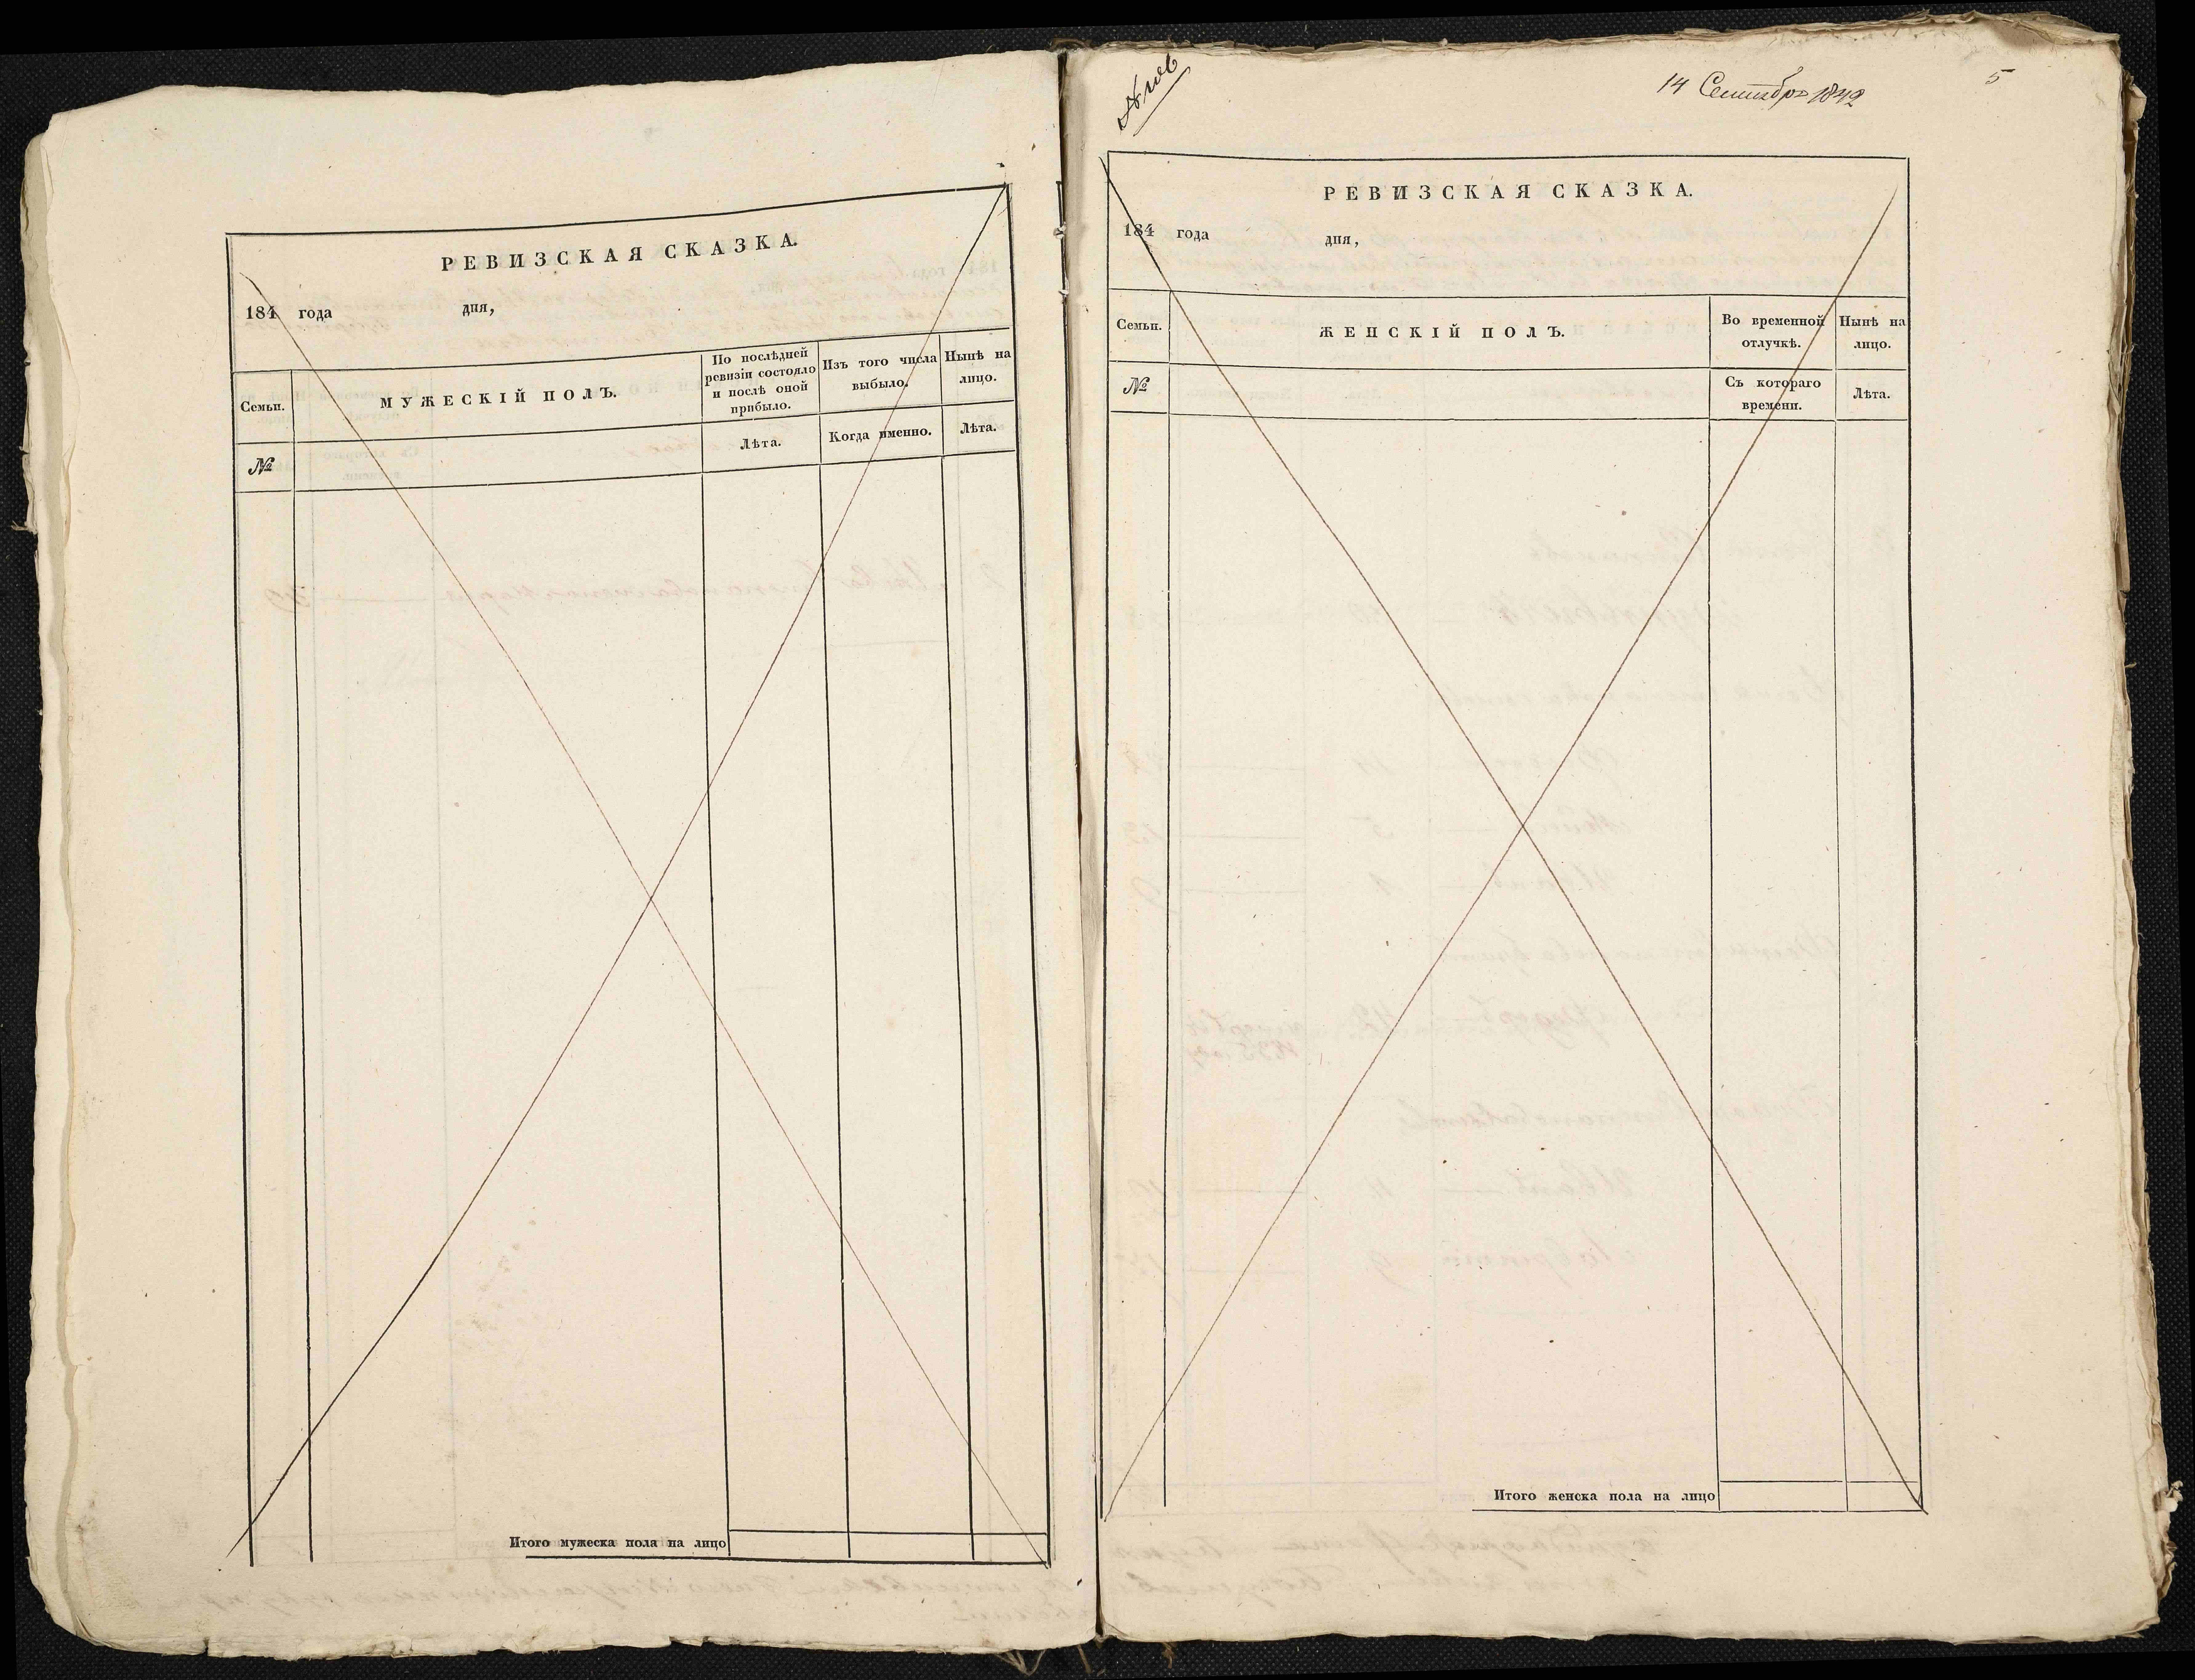 РЕВИЗСКАЯ СКАЗКА.
184 года дня,
Семьи.
МУЖЕСКІЙ ПОЛЪ.
По послѣдней
ревизіи состояло
и послѣ оной
прибыло.
Изъ того числа
выбыло.
Нынѣ на
лицо.
№
Лѣта.
Когда именно.
Лѣта.
Итого мужеска пола на лицо
14 Сентября 1842
5
РЕВИЗСКАЯ СКАЗКА.
184 года дня,
Семьи.
ЖЕНСКІЙ ПОЛЪ.
Во временной
отлучкѣ.
Нынѣ на
лицо.
№
Съ котораго
времени.
Лѣта.
Итого женска пола на лицо